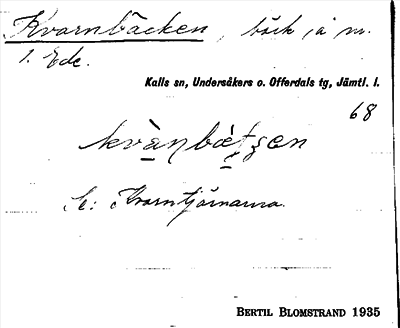 Kvarnbäcken, bäck i ä m.
1. Ede.
Kalls sn, Undersåkers o. Offerdals tg, Jämtl. l.
68
kvànbæ̀tʂen
Se: Kvarntjärnarna.
BERTIL BLOMSTRAND 1935